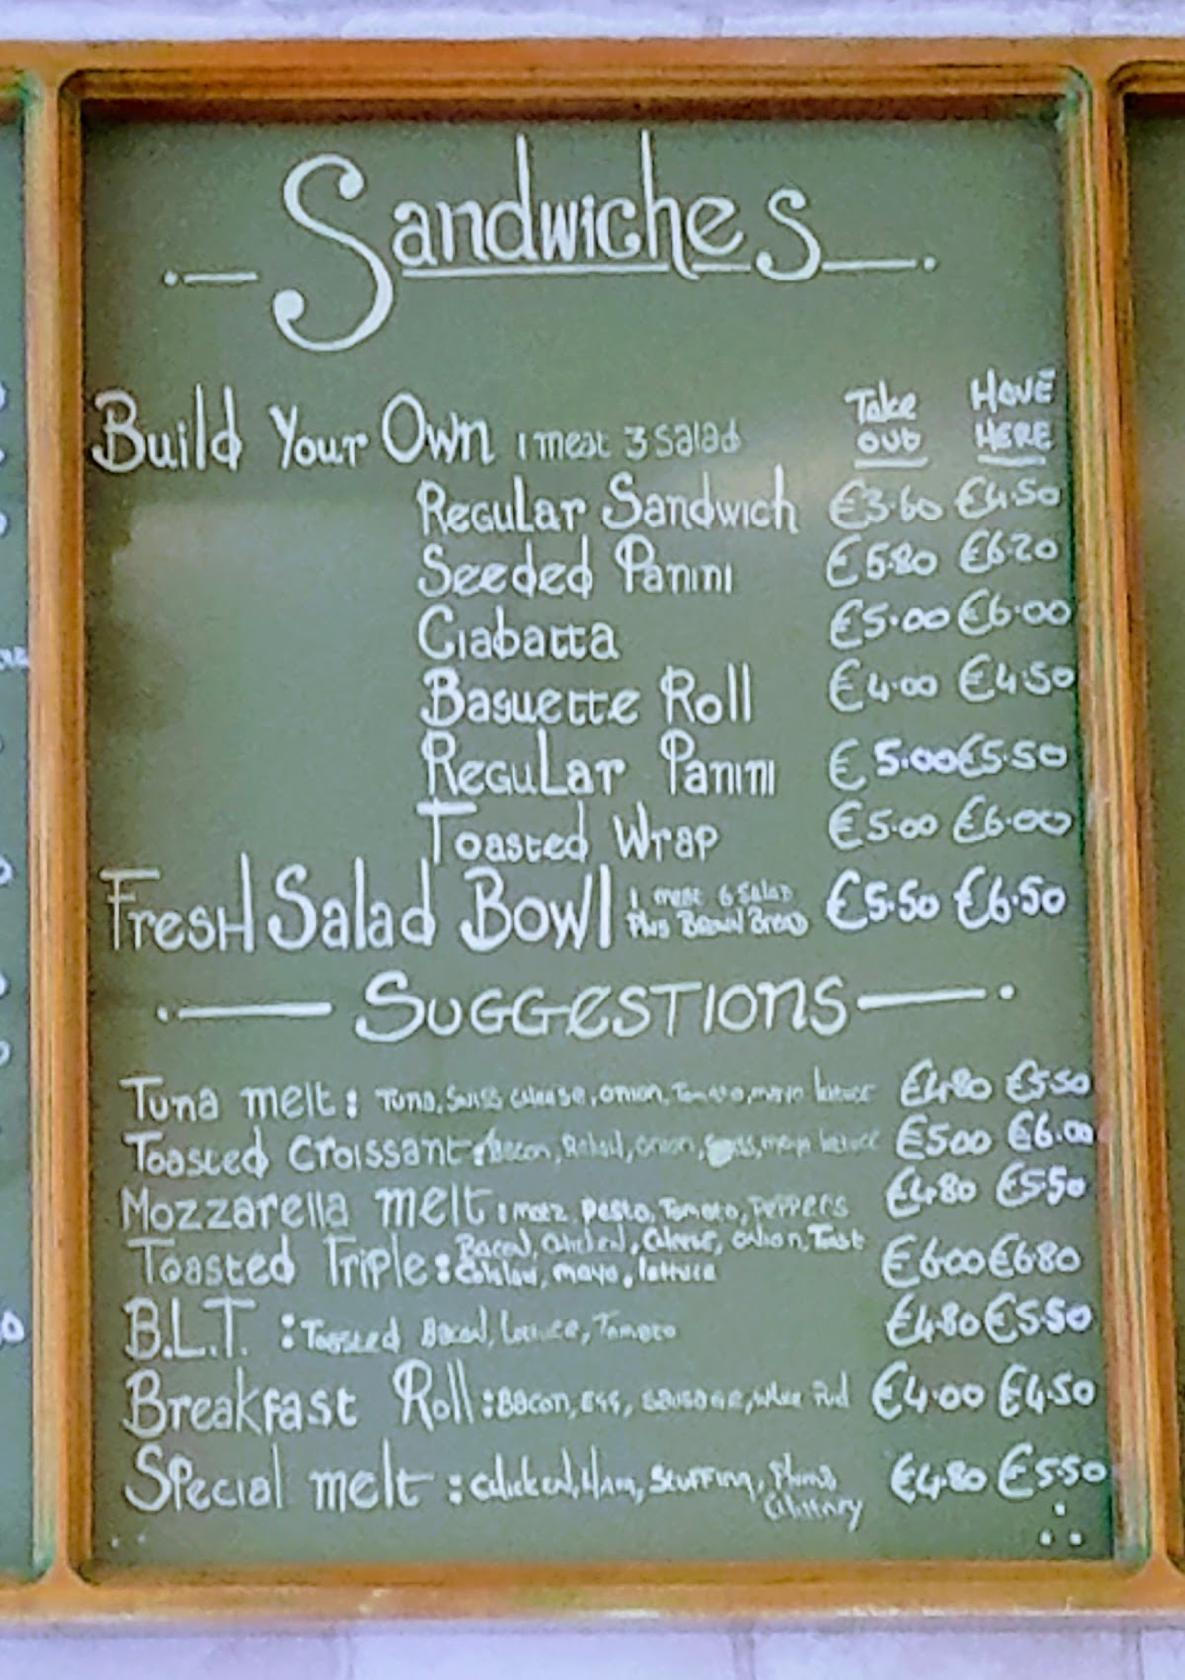 Sandwiches
Build Your Own 1 meat 3 Salad Take out HAVE HERE
Regular Sandwich €3.60 €4.50
Seeded Panini €5.80 €6.20
Ciabatta €5.00 €6.00
Baguette Roll €4.00 €4.50
Regular Panini €5.00 €5.50
Toasted Wrap €5.00 €6.00
Fresh Salad Bowl 1 meat 6 Salad Plus Brown Bread €5.50 €6.50
Suggestions
Tuna melt: Tuna, Swiss cheese, onion, Tomato, mayo lettuce €4.80 €5.50
Toasted Croissant: Bacon, Relish, onion, Swiss, mayo lettuce €5.00 €6.00
Mozzarella melt: Mozz, Pesto, Tomato, Peppers €4.80 €5.50
Toasted Triple: Bacon, Chicken, Cheese, onion, Toast €6.00 €6.80
Coleslaw, mayo, lettuce
B.L.T. : Toasted Bacon, Lettuce, Tomato €4.80 €5.50
Breakfast Roll: Bacon, Egg, Sausage, White Pud €4.00 €4.50
Special melt: Chicken, Ham, Stuffing, €4.80 €5.50